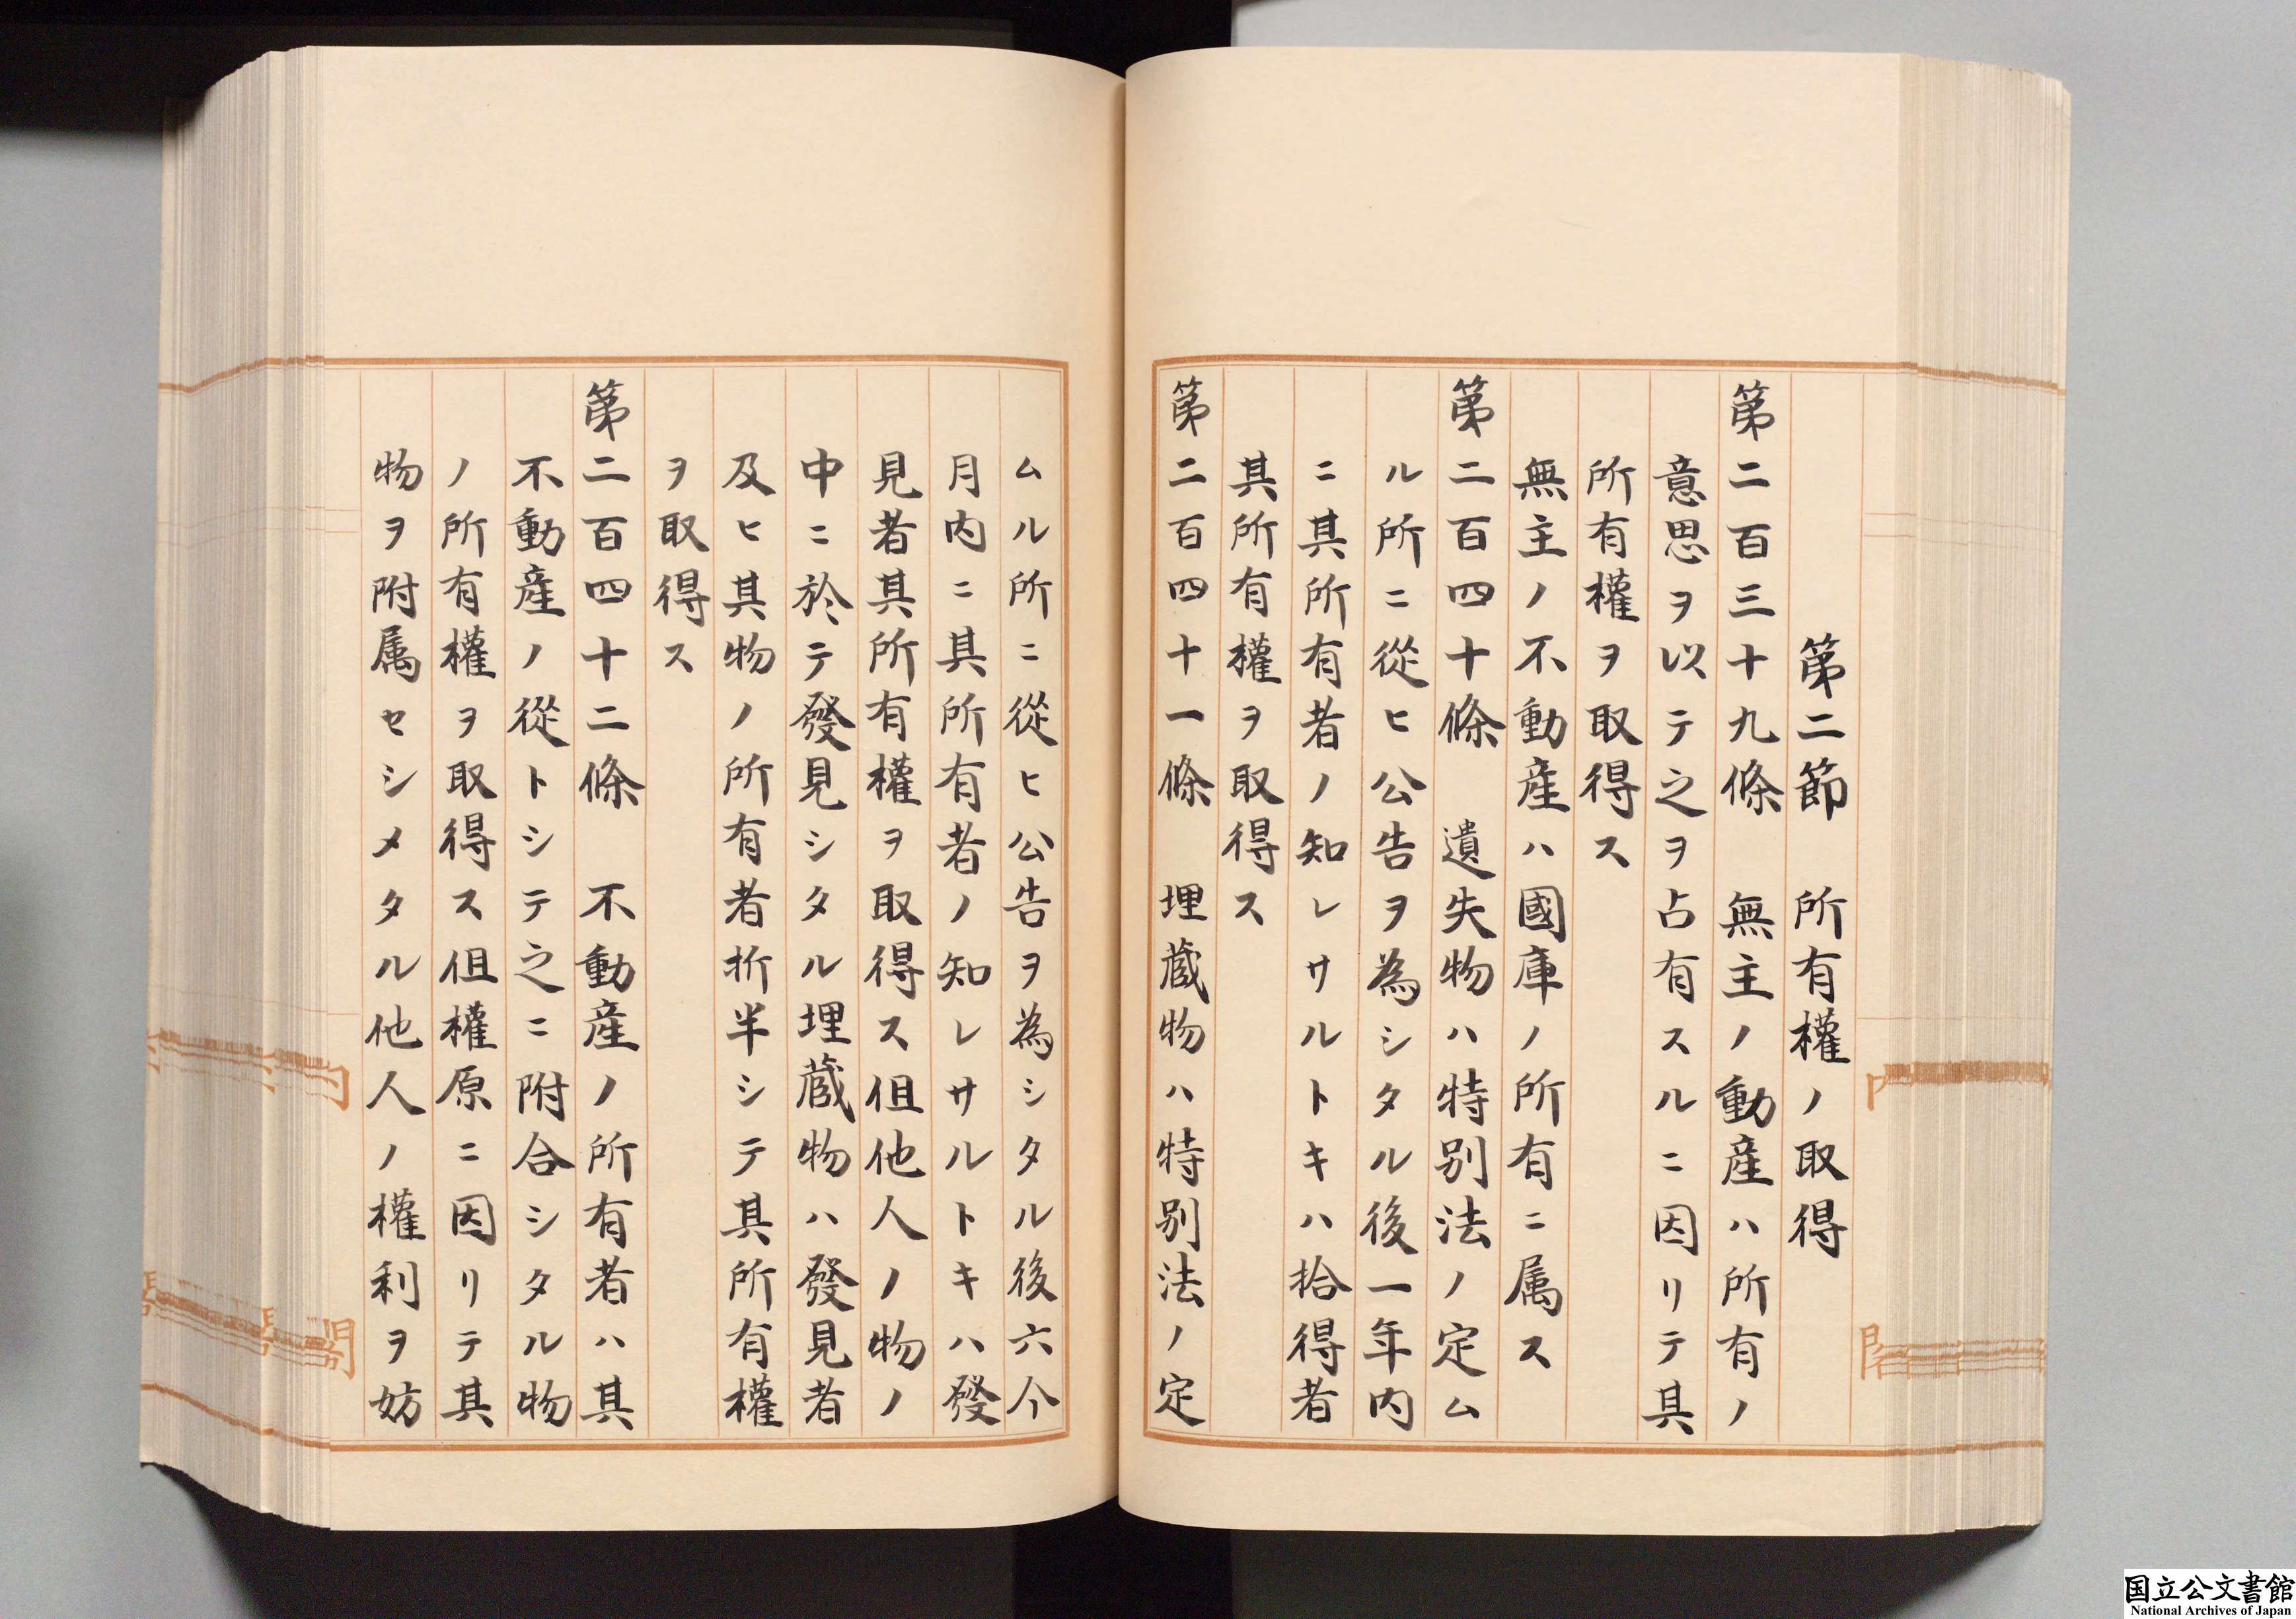 第二節　所有權ノ取得
第二百三十九條　無主ノ動産ハ所有ノ
意思ヲ以テ之ヲ占有スルニ因リテ其
所有權ヲ取得ス
無主ノ不動産ハ國庫ノ所有ニ属ス
第二百四十條　遺失物ハ特別法ノ定ム
ル所ニ從ヒ公告ヲ為シタル後一年内
ニ其所有者ノ知レサルトキハ拾得者
其所有權ヲ取得ス
第二百四十一條　埋蔵物ハ特別法ノ定
ムル所ニ從ヒ公告ヲ為シタル後六个
月内ニ其所有者ノ知レサルトキハ發
見者其所有權ヲ取得ス但他人ノ物ノ
中ニ於テ發見シタル埋蔵物ハ發見者
及ヒ其物ノ所有者折半シテ其所有權
ヲ取得ス
第二百四十二條　不動産ノ所有者ハ其
不動産ノ從トシテ之ニ附合シタル物
ノ所有權ヲ取得ス但權原ニ因リテ其
物ヲ附属セシメタル他人ノ權利ヲ妨
国立公文書館
National Archives of Japan